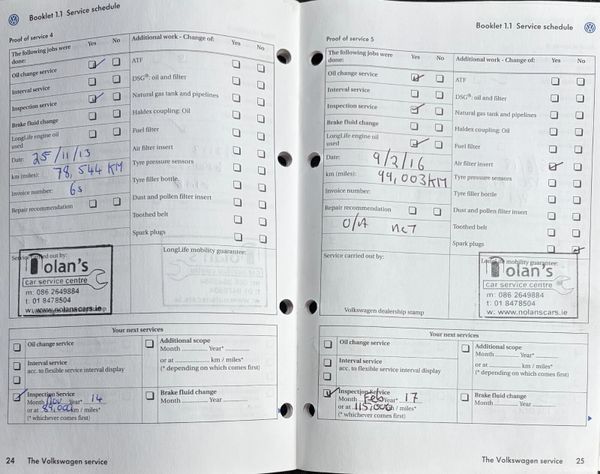 Booklet 1.1 Service schedule
Proof of service 4
The following jobs were done:
Yes No
Additional work - Change of:
Yes No
Oil change service
Interval service
Inspection service
Brake fluid change
LongLife engine oil used
Date: 25/11/13
km (miles): 78,544 KM
Invoice number: 63
Repair recommendation
ATF
DSG®: oil and filter
Natural gas tank and pipelines
Haldex coupling: Oil
Fuel filter
Air filter insert
Tyre pressure sensors
Tyre filler bottle
Dust and pollen filter insert
Toothed belt
Spark plugs
Service carried out by:
LongLife mobility guarantee:
Nolan's
car service centre
m: 086 2649884
t: 01 8478504
w: www.nolanscars.ie
Your next services
Oil change service
Interval service
acc. to flexible service interval display
Inspection Service
Month Nov Year* 14
or at 89,000 km / miles*
(* whichever comes first)
Additional scope
Month Year*
or at km / miles*
(* depending on which comes first)
Brake fluid change
Month Year
24 The Volkswagen service
Booklet 1.1 Service schedule
Proof of service 5
The following jobs were done:
Yes No
Additional work - Change of:
Yes No
Oil change service
Interval service
Inspection service
Brake fluid change
LongLife engine oil used
Date: 9/2/16
km (miles): 99,003KM
Invoice number:
Repair recommendation
NCT
ATF
DSG®: oil and filter
Natural gas tank and pipelines
Haldex coupling: Oil
Fuel filter
Air filter insert
Tyre pressure sensors
Tyre filler bottle
Dust and pollen filter insert
Toothed belt
Spark plugs
Service carried out by:
LongLife mobility guarantee:
Nolan's
car service centre
m: 086 2649884
t: 01 8478504
w: www.nolanscars.ie
Volkswagen dealership stamp
Your next services
Oil change service
Interval service
acc. to flexible service interval display
Inspection Service
Month Feb Year* 17
or at 115,000 km / miles*
(* whichever comes first)
Additional scope
Month Year*
or at km / miles*
(* depending on which comes first)
Brake fluid change
Month Year
The Volkswagen service 25